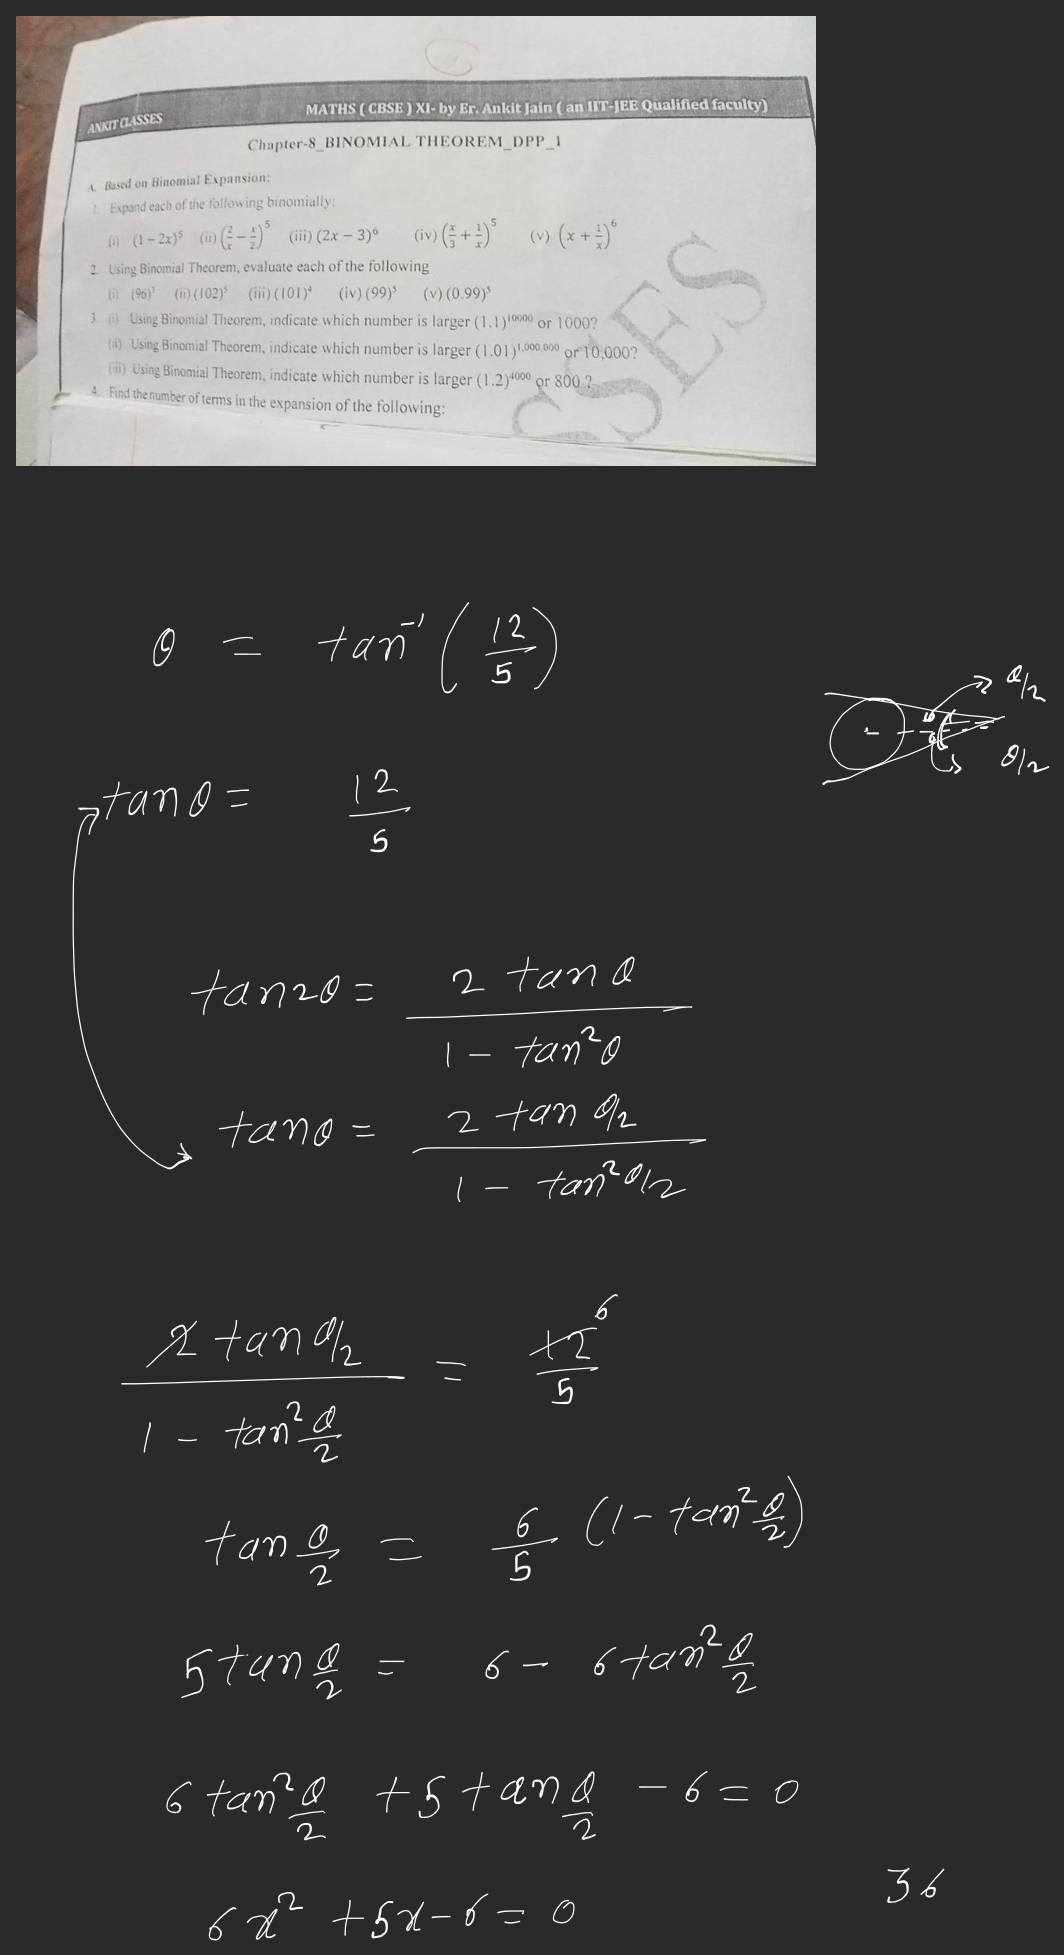 ANKIT CLASSES
MATHS ( CBSE ) XI- by Er. Ankit Jain ( an IIT-JEE Qualified faculty)
Chapter-8_BINOMIAL THEOREM_DPP_1
A. Based on Binomial Expansion:
1. Expand each of the following binomially:
(i) (1 − 2x)⁵ (ii) (2/x − x/2)⁵ (iii) (2x − 3)⁶ (iv) (x/3 + 1/x)⁵ (v) (x + 1/x)⁶
2. Using Binomial Theorem, evaluate each of the following
(i) (96)³ (ii) (102)⁵ (iii) (101)⁴ (iv) (99)⁵ (v) (0.99)⁵
3. (i) Using Binomial Theorem, indicate which number is larger (1.1)¹⁰⁰⁰⁰ or 1000?
(ii) Using Binomial Theorem, indicate which number is larger (1.01)^1,000,000 or 10,000?
(iii) Using Binomial Theorem, indicate which number is larger (1.2)⁴⁰⁰⁰ or 800 ?
4. Find the number of terms in the expansion of the following:
SSES
θ = tan⁻¹ (12/5)
θ/2
θ/2
tanθ = 12/5
tan2θ = 2 tanθ / 1 − tan²θ
tanθ = 2 tan θ/2 / 1 − tan² θ/2
2 tan θ/2 / 1 − tan² θ/2 = 12/5 6
tan θ/2 = 6/5 (1 − tan² θ/2)
5 tan θ/2 = 6 − 6 tan² θ/2
6 tan² θ/2 + 5 tan θ/2 − 6 = 0
36
6x² + 5x − 6 = 0